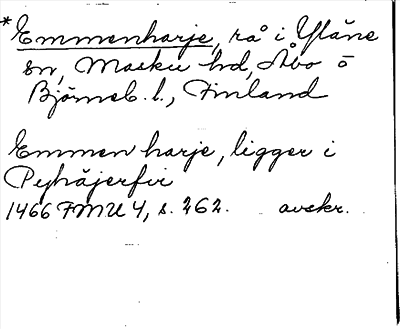 *Emmenharje, rå i Yläne
sn, Masku hd, Åbo o
Björneb. l., Finland
Emmen harje, ligger i
Pyhäjerfir
1466 FMU 4, s. 262. avskr.